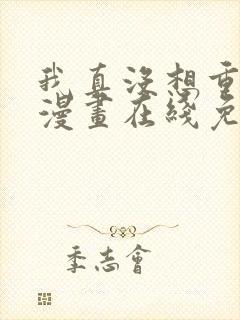 我真没想重
漫畫在綫免
季志會